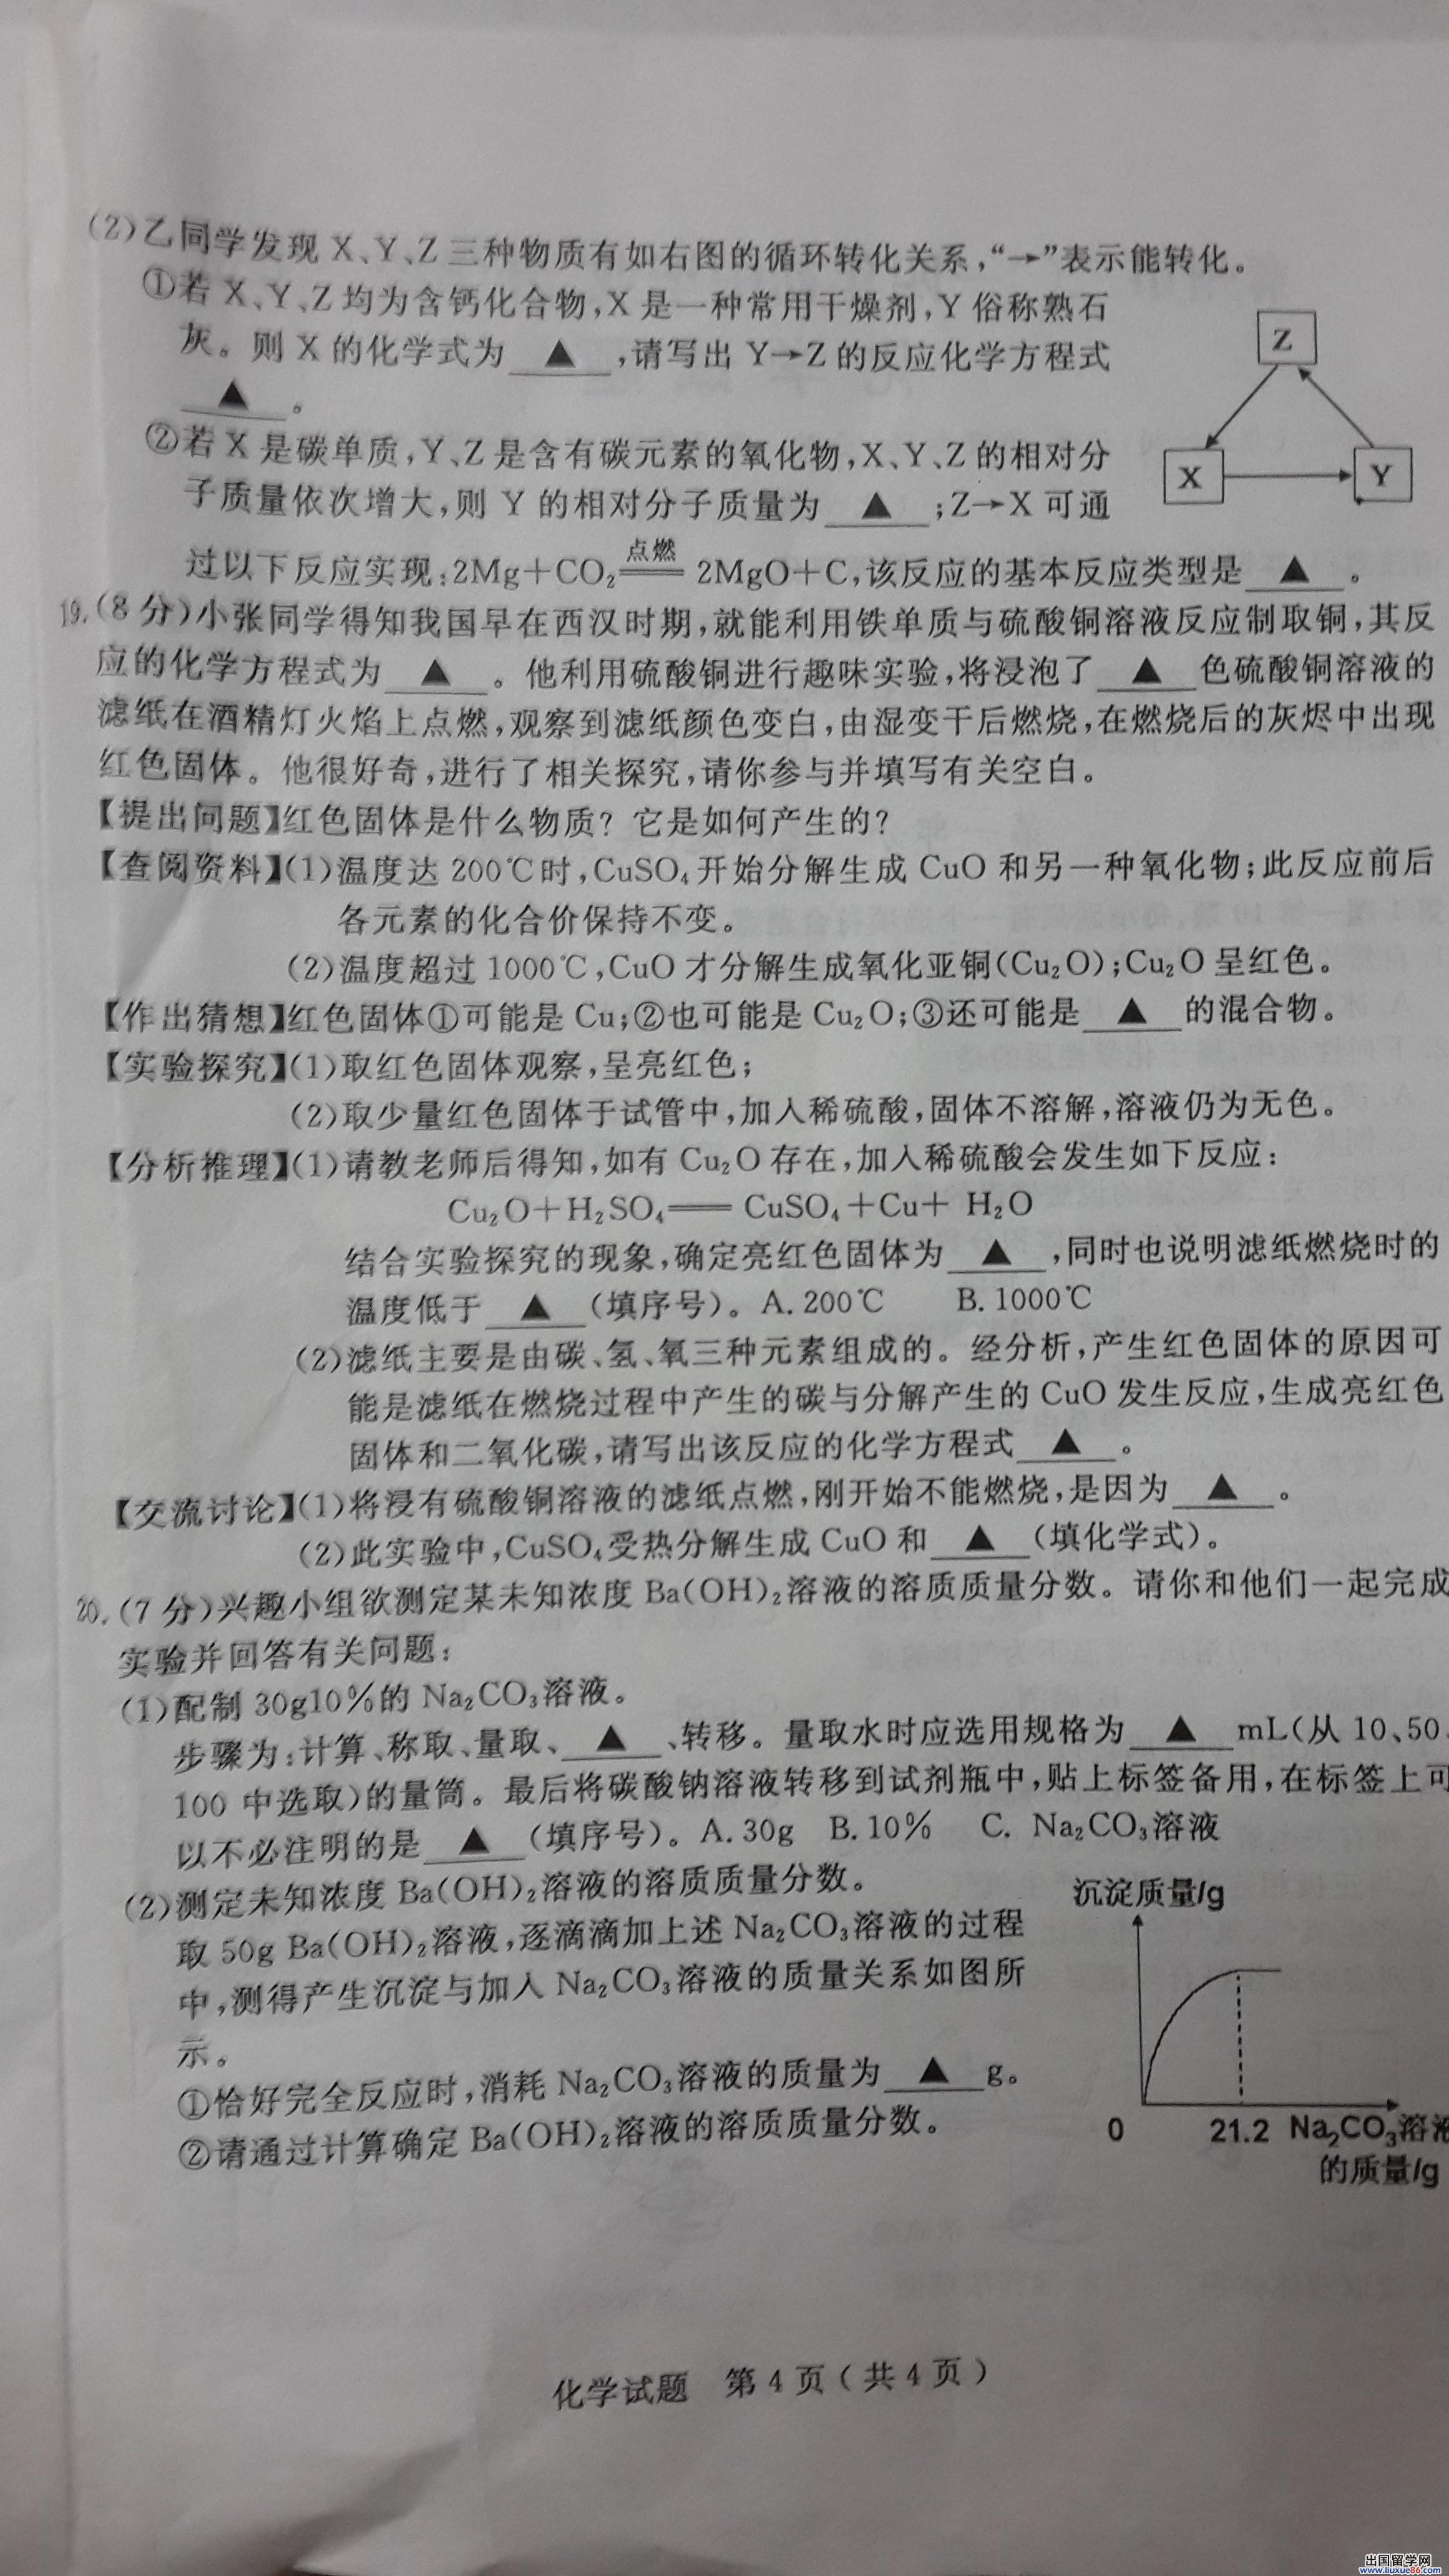 (2)乙同学发现 X、Y、Z 三种物质有如右图的循环转化关系,“→”表示能转化。
①若 X、Y、Z 均为含钙化合物,X 是一种常用干燥剂,Y 俗称熟石
灰。则 X 的化学式为 ▲ ,请写出 Y→Z 的反应化学方程式
▲ 。
Z
X
Y
②若 X 是碳单质,Y、Z 是含有碳元素的氧化物,X、Y、Z 的相对分
子质量依次增大,则 Y 的相对分子质量为 ▲ ;Z→X 可通
过以下反应实现:2Mg+CO₂ 点燃══ 2MgO+C,该反应的基本反应类型是 ▲ 。
19.(8 分)小张同学得知我国早在西汉时期,就能利用铁单质与硫酸铜溶液反应制取铜,其反
应的化学方程式为 ▲ 。他利用硫酸铜进行趣味实验,将浸泡了 ▲ 色硫酸铜溶液的
滤纸在酒精灯火焰上点燃,观察到滤纸颜色变白,由湿变干后燃烧,在燃烧后的灰烬中出现
红色固体。他很好奇,进行了相关探究,请你参与并填写有关空白。
【提出问题】红色固体是什么物质? 它是如何产生的?
【查阅资料】(1)温度达 200℃时,CuSO₄开始分解生成 CuO 和另一种氧化物;此反应前后
各元素的化合价保持不变。
(2)温度超过 1000℃,CuO 才分解生成氧化亚铜(Cu₂O);Cu₂O 呈红色。
【作出猜想】红色固体①可能是 Cu;②也可能是 Cu₂O;③还可能是 ▲ 的混合物。
【实验探究】(1)取红色固体观察,呈亮红色;
(2)取少量红色固体于试管中,加入稀硫酸,固体不溶解,溶液仍为无色。
【分析推理】(1)请教老师后得知,如有 Cu₂O 存在,加入稀硫酸会发生如下反应:
Cu₂O+H₂SO₄══ CuSO₄+Cu+ H₂O
结合实验探究的现象,确定亮红色固体为 ▲ ,同时也说明滤纸燃烧时的
温度低于 ▲ (填序号)。A. 200℃ B. 1000℃
(2)滤纸主要是由碳、氢、氧三种元素组成的。经分析,产生红色固体的原因可
能是滤纸在燃烧过程中产生的碳与分解产生的 CuO 发生反应,生成亮红色
固体和二氧化碳,请写出该反应的化学方程式 ▲ 。
【交流讨论】(1)将浸有硫酸铜溶液的滤纸点燃,刚开始不能燃烧,是因为 ▲ 。
(2)此实验中,CuSO₄受热分解生成 CuO 和 ▲ (填化学式)。
20.(7 分)兴趣小组欲测定某未知浓度 Ba(OH)₂溶液的溶质质量分数。请你和他们一起完成
实验并回答有关问题:
(1)配制 30g10%的 Na₂CO₃溶液。
步骤为:计算、称取、量取、 ▲ 、转移。量取水时应选用规格为 ▲ mL(从 10、50、
100 中选取)的量筒。最后将碳酸钠溶液转移到试剂瓶中,贴上标签备用,在标签上可
以不必注明的是 ▲ (填序号)。A. 30g B. 10% C. Na₂CO₃溶液
(2)测定未知浓度 Ba(OH)₂溶液的溶质质量分数。
取 50g Ba(OH)₂溶液,逐滴滴加上述 Na₂CO₃溶液的过程
中,测得产生沉淀与加入 Na₂CO₃溶液的质量关系如图所
示。
①恰好完全反应时,消耗 Na₂CO₃溶液的质量为 ▲ g。
②请通过计算确定 Ba(OH)₂溶液的溶质质量分数。
沉淀质量/g
0 21.2 Na₂CO₃溶液
的质量/g
化学试题 第 4 页(共 4 页)
出国留学网
www.liuxue86.com